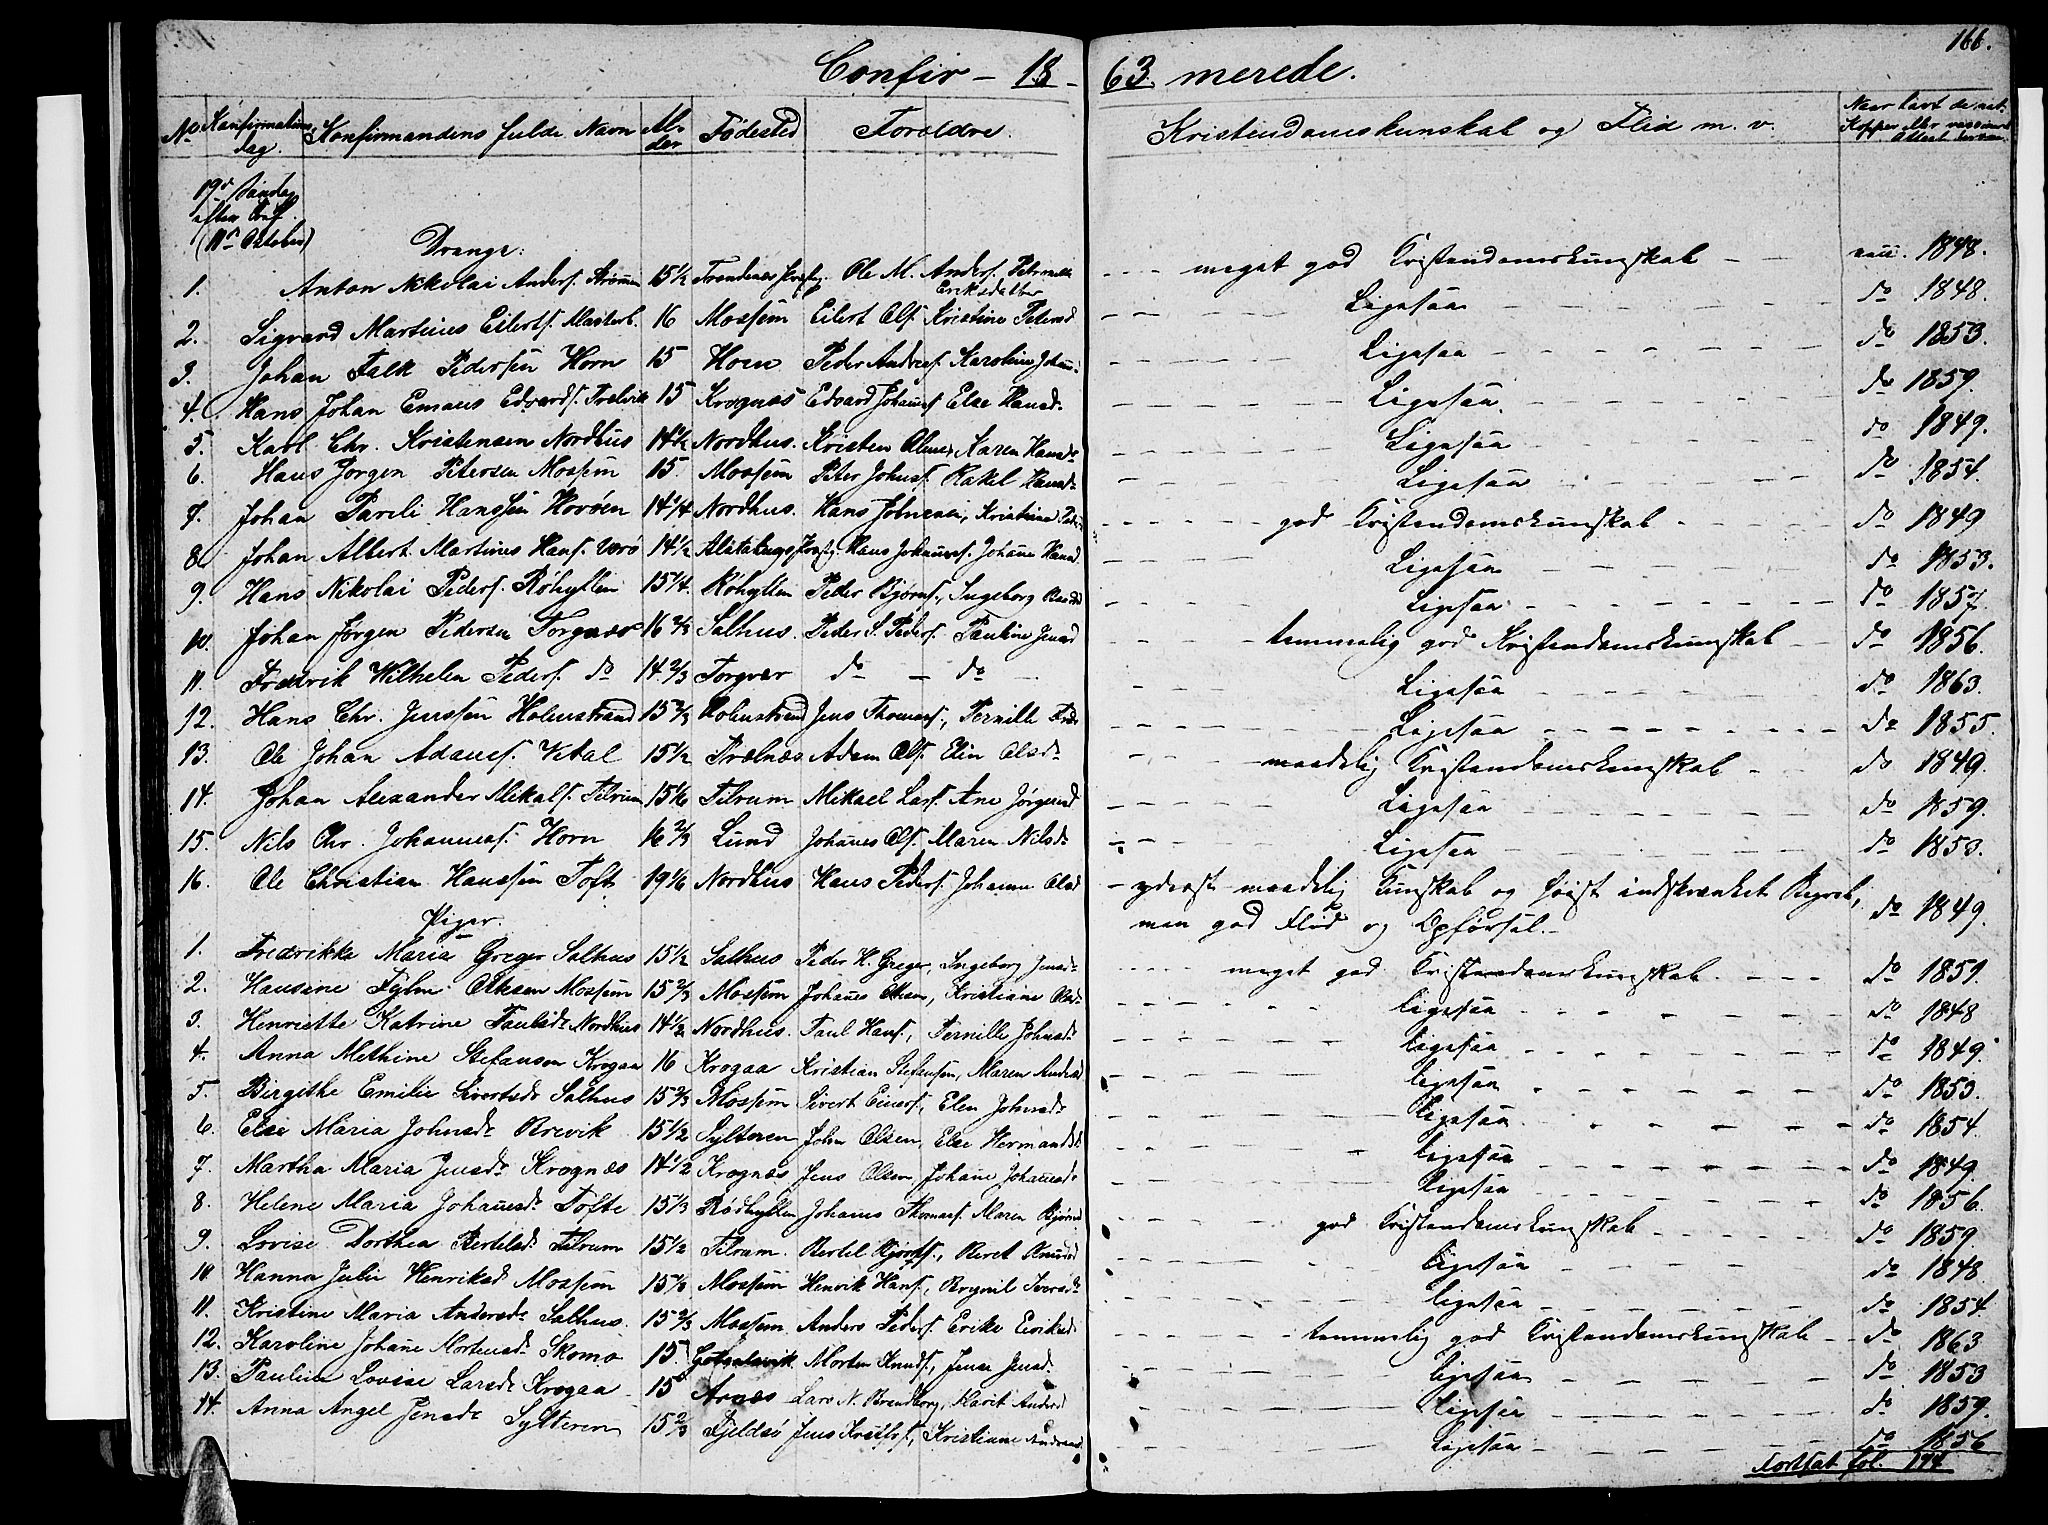 166.
Confir - 18 - 63. merede.
No Konfirmations dag. Konfirmandens fulde Navn Al- der Fødested Forældre. Kristendomskunskab og Flid m. v. Naar havt de nat. Kopper eller vaccineret
19d Søndag
efter Tref.
(11te October)
Drenge:
1. Anton Nikolai Anders. 15 1/2 Trondenæs Ole M. Anders. Eriksdatter meget god Kristendomskunskab vacc. 1848.
2. Sigvard Martinus Eilerts. 16 Mossem Eilert Ols. Kristine Petersd Ligesaa do 1848.
3. Johan Falk Pedersen Horn 15 Horn Peder Andreas. Karoline Ligesaa do 1853.
4. Hans Johan Emaus Edvards. 15 Krognæs Edvard Johans Else Hansd. Ligesaa do 1859.
5. Karl Chr. Kristensen Nordhus 14 1/2 Nordhus. Kristen Karen Hansd Ligesaa do 1849.
6. Hans Jørgen Petersen Mossem 15. Mossem Peter Johns. Rakel Hansd Ligesaa do 1854.
7. Johan Pareli Hanssen Horøen 14 1/4 Nordhus. Hans Johnsen, Kristine god Kristendomskunskab do 1849
8. Johan Albert Martinus Hans. 14 1/2 Hans Johannes. Johanne Hansd Ligesaa do 1853.
9. Hans Nikolai Peders. Røhyllen 15 1/4. Røhyllen Peder Bjørns., Ingeborg Ligesaa do 1857.
10. Johan Jørgen Pedersen Torgvær 16 2/3 Salhus. Peder S. Peders. Pauline Jensd temmelig god Kristendomskunskab do 1856.
11. Fredrik Wilhelm Peders. do 14 2/3 Torgvær do - do Ligesaa do 1863.
12. Hans Chr. Jenssen Holmstrand 15 2/3 Holmstrand Jens Thomas., Pernille Ligesaa do 1855.
13. Ole Johan Adams. Vetal 15 1/2 Trælnæs Adam Ols. Elen Olsd maadelig Kristendomskunskab do 1849.
14. Johan Alexander Mikals. Tilrum 15 1/6 Tilrum Mikael Lars. Ane Jørgensd Ligesaa do 1859.
15. Nils Chr. Johannes. Horn 16 2/3 Lund Johannes Ols. Maren Nilsd Ligesaa do 1853.
16. Ole Christian Hanssen Toft 19 1/6 Nordhus Hans Peders. Johanne Olsd yderst maadelig Kunskab og høist indskrænket Begreb,
men god Flid og Opførsel. do 1849.
Piger.
1. Fredrikke Maria Greger Salhus 15 1/2 Salhus Peder H. Greger, Ingeborg Jensd meget god Kristendomskunskab. do 1859.
2. Hansine Olsen Mossem 15 2/3 Mossem Johannes Olsen, Kristiane Olsd Ligesaa do 1848
3. Henriette Katrine Paulsd Nordhus 14 1/2 Nordhus. Paul Hans., Pernille Johnsd Ligesaa do 1849.
4. Anna Methine Stefansen Krogaa 16 Krogaa Kristian Stefansen, Maren Andersd Ligesaa do 1853.
5. Birgithe Emilie Sivertsd Salhus 15 2/3 Mossem Sivert Einers., Elen Johnsd Ligesaa do 1854.
6. Else Maria Johnsd Brevik 15 1/2 Sylteren John Olsen, Else Hermansd. Ligesaa do 1849.
7. Martha Maria Jensd Krognæs 14 1/2 Krognæs Jens Olsen Johanne Johannesd Ligesaa do 1856.
8. Helene Maria Johannesd Tofte 15 1/3 Rødhyllen Johannes Thomas. Maren Bjørnsd god Kristendomskunskab do 1859
9. Lovise Dorthea Bertelsd Tilrum 15 1/2 Tilrum. Bertel Bjørs., Beret Knudsd Ligesaa do 1848
10 Hanna Julie Henriksd Mossem 15 1/3 Mossem Henrik Hans., Brynil Iversd Ligesaa do 1854
11. Kristine Maria Andersd Salhus. 15 2/3 Mossem Anders Peders. Erike Eriksd temmelig god Kristendomskunskab do 1863
12. Karoline Johanne Mortensd Skomo 15. Morten Knuds., Jensd. Ligesaa do 1853
13. Pauline Lovise Larsd Krogaa 15 Arnæs Lars N. Brendberg, Marit Andersd Ligesaa do 1859.
14. Anna Angel Jensd Sylteren 15 2/3 Fjeldsø Jens Kristofs., Kristiane Andreasd Ligesaa do 1856
Fortsat fol. 174